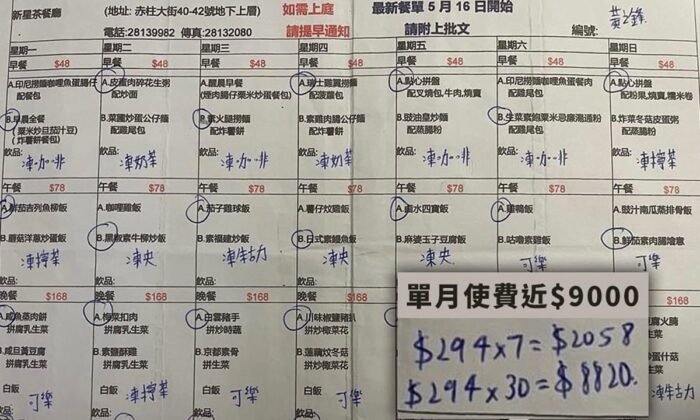 新星茶餐廳 (地址: 赤柱大街40-42號地下上層) 如需上庭 最新餐單 5 月 16 日開始
電話:28139982 傳真:28132080 請提早通知 請附上批文 編號:
星期一 星期二 星期三 星期四 星期五 星期六 星期日
早餐 $48 早餐 $48 早餐 $48 早餐 $48 早餐 $48 早餐 $48 早餐 $48
A.印尼撈麵咖喱魚蛋豬仔 A.皮蛋肉碎花生粥 A.醒晨早餐 A.瑞士雞翼撈麵 A.點心拼盤 A.印尼撈麵咖喱魚蛋餐肉 A.點心拼盤
配餐包 配炒面 (燒肉腸仔粟米炒蛋餐包) 配菠蘿包 配叉燒包,牛肉,燒賣 配雞尾包 配粉果,燒賣,糯米卷
B.早晨全餐 B.菜圃炒蛋公仔麵 B.素火腿撈麵 B.素雞肉腸公仔麵 B.豉油皇炒麵 B.生菜素鮑粟米忌廉湯通粉 B.炸菜冬菇皮蛋粥
(粟米炒旦茄汁豆) 配雞尾包 配炸薯餅 配炸薯餅 配蒸腸粉 配雞尾包 配蒸腸粉
(炸薯餅餐包)
飲品: 凍咖啡 飲品: 凍奶茶 飲品: 凍咖啡 飲品: 凍奶茶 飲品: 凍咖啡 飲品: 凍咖啡 飲品: 凍檸茶
午餐 $78 午餐 $78 午餐 $78 午餐 $78 午餐 $78 午餐 $78 午餐 $78
A.鮮茄吉列魚柳飯 A.咖喱雞飯 A.茄子雞球飯 A.薯仔炆雞飯 A.鹵水四寶飯 A.雞鴨飯 A.豉汁南瓜蒸排骨飯
B.蘑菇洋蔥炒蛋飯 B.黑椒素牛柳炒飯 B.素福建炒飯 B.日式素鰻魚飯 B.麻婆玉子豆腐飯 B.咕嚕素雞飯 B.鮮茄素肉腸燴意
飲品: 凍檸茶 飲品: 凍央 飲品: 凍朱古力 飲品: 凍央 飲品: 凍央 飲品: 可樂 飲品: 可樂
晚餐 $168 晚餐 $168 晚餐 $168 晚餐 $168
A.咸魚蒸肉餅 A.梅菜扣肉 A.白雲豬手 A.川味椒鹽豬扒
拼腐乳生菜 拼腐乳生菜 拼炒時蔬 拼炒欖菜花
B.咸旦黃豆腐 B.素鹽酥雞 B.京都素骨 B.蓮藕炆冬菇
拼腐乳生菜 拼炒生菜 拼炒生菜 拼炒欖菜花
白飯 可樂 白飯 凍檸茶 白飯 可樂 白飯 可樂
單月使費近$9000
$294x7=$2058
$294x30=$8820.